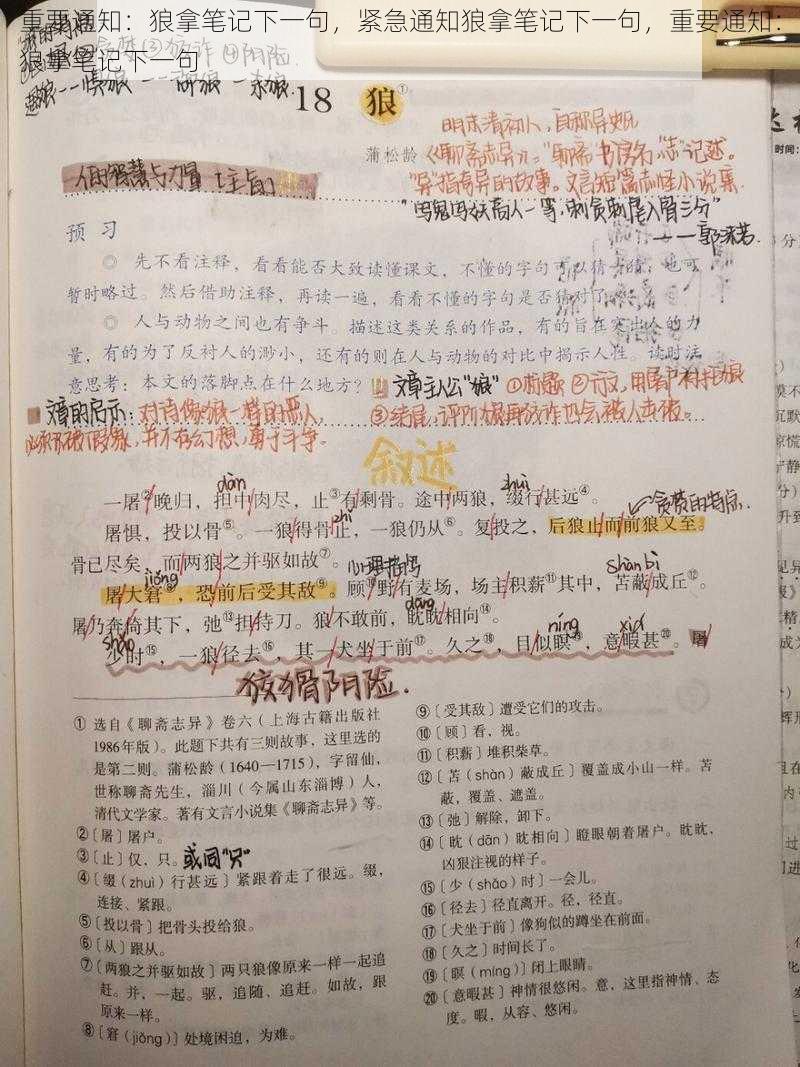 重要通知：狼拿笔记下一句，紧急通知狼拿笔记下一句，重要通知：
狼拿笔记下一句
③狡诈 ④阴险
遇狼——惧狼——御狼—杀狼.
18 狼①
明末清初人，自称异史氏
蒲松龄《聊斋志异》："聊斋"书房名"志"记述。
"异"指奇异的故事。文言短篇志怪小说集
人的智慧与力量【主旨】
"写鬼写妖高人一等，刺贪刺虐入骨三分"
——郭沫若.
预习
◎ 先不看注释，看看能否大致读懂课文，不懂的字句可以猜一猜，也可
暂时略过。然后借助注释，再读一遍，看看不懂的字句是否猜对了。
◎ 人与动物之间也有争斗。描述这类关系的作品，有的旨在突出人的力
量，有的为了反衬人的渺小，还有的则在人与动物的对比中揭示人性。读时注
意思考：本文的落脚点在什么地方？
文章主人公"狼" ①
文章的启示：对待像狼一样的恶人，
③结尾，评
并不存幻想，勇于斗争。
叙述
dàn
zhuì
一屠②晚归，担中肉尽，止③有剩骨。途中两狼，缀行甚远④。
贪婪的特点.
zhǐ
屠惧，投以骨⑤。一狼得骨止，一狼仍从⑥。复投之，后狼止而前狼又至。
骨已尽矣，而两狼之并驱如故⑦。
心理描写
jiǒng
shàn bì
屠大窘⑧，恐前后受其敌⑨。顾⑩野有麦场，场主积薪⑪其中，苫蔽成丘⑫。
dāng
屠乃奔倚其下，弛⑬担持刀。狼不敢前，眈眈相向⑭。
shǎo
míng
xiá
少时⑮，一狼径去⑯，其一犬坐于前⑰。久之⑱，目似瞑⑲，意暇甚⑳。屠
狡猾阴险.
① 选自《聊斋志异》卷六（上海古籍出版社
1986年版）。此题下共有三则故事，这里选的
是第二则。蒲松龄（1640—1715），字留仙，
世称聊斋先生，淄川（今属山东淄博）人，
清代文学家。著有文言小说集《聊斋志异》等。
②〔屠〕屠户。
③〔止〕仅、只。或同"只"
④〔缀（zhuì）行甚远〕紧跟着走了很远。缀，
连接、紧跟。
⑤〔投以骨〕把骨头投给狼。
⑥〔从〕跟从。
⑦〔两狼之并驱如故〕两只狼像原来一样一起追
赶。并，一起。驱，追随、追赶。如故，跟
原来一样。
⑧〔窘（jiǒng）〕处境困迫，为难。
⑨〔受其敌〕遭受它们的攻击。
⑩〔顾〕看，视。
⑪〔积薪〕堆积柴草。
⑫〔苫（shàn）蔽成丘〕覆盖成小山一样。苫
蔽，覆盖、遮盖。
⑬〔弛〕解除，卸下。
⑭〔眈（dān）眈相向〕瞪眼朝着屠户。眈眈，
凶狠注视的样子。
⑮〔少（shǎo）时〕一会儿。
⑯〔径去〕径直离开。径，径直。
⑰〔犬坐于前〕像狗似的蹲坐在前面。
⑱〔久之〕时间长了。
⑲〔瞑（míng）〕闭上眼睛。
⑳〔意暇甚〕神情很悠闲。意，这里指神情、态
度。暇，从容、悠闲。